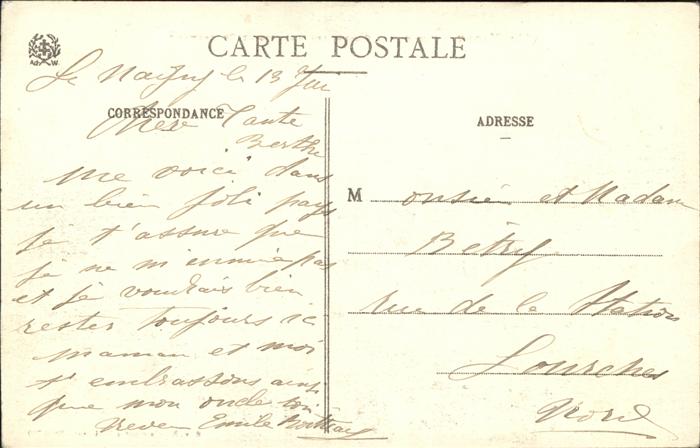 CARTE POSTALE
le 13
CORRESPONDANCE
Chère Tante
Berthe
me voici dans
un bien joli pays
je t'assure que
je ne m'ennuie pas
et je voudrais bien
rester toujours ici
maman et moi
t'embrassons ainsi
que mon oncle ton
neveu Emile
ADRESSE
Monsieur et Madame
Bétry
rue de la Station
Lourches
Nord